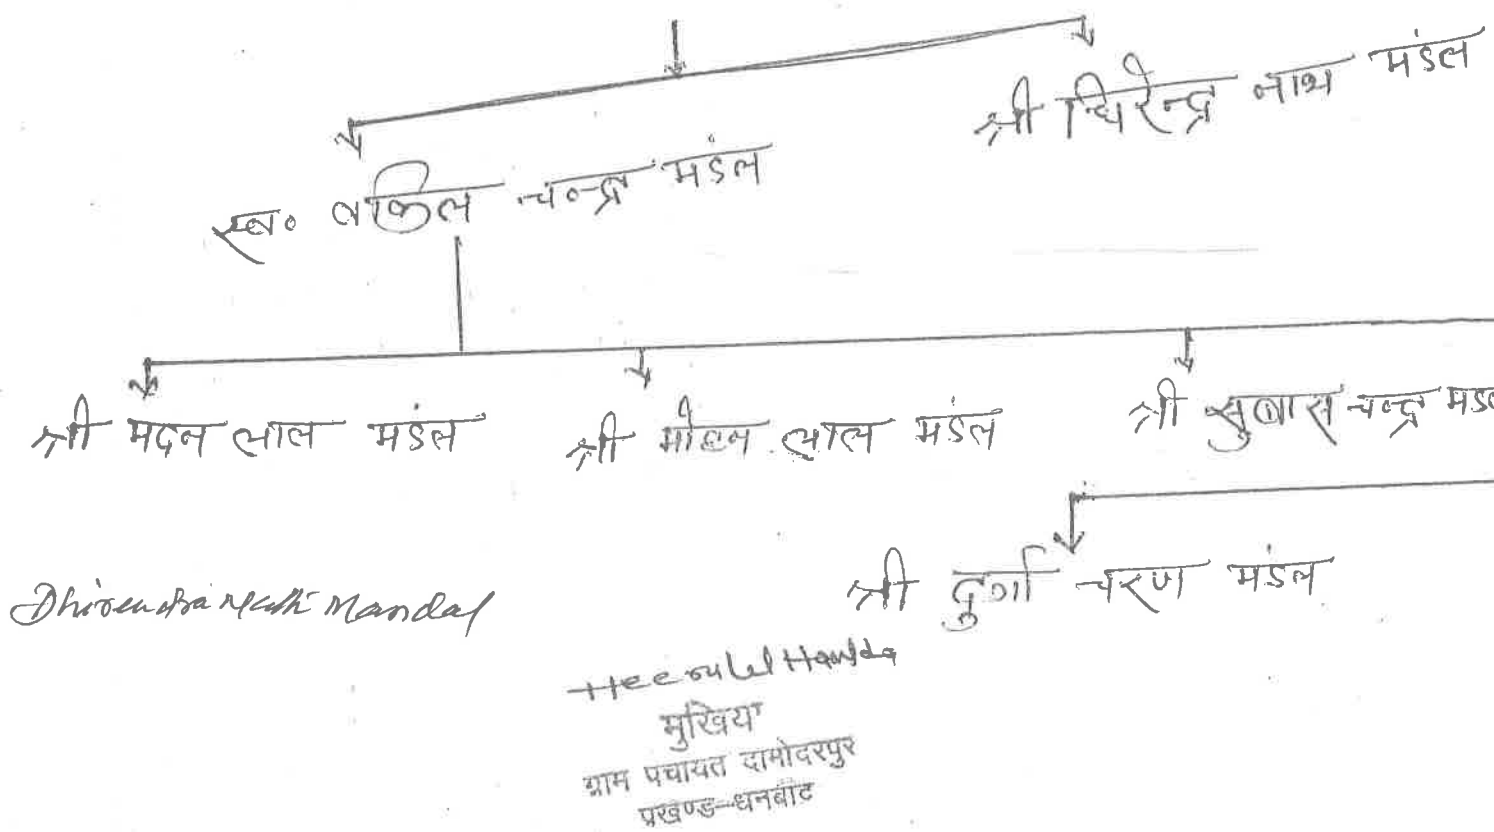 श्री धिरेन्द्र नाथ मंडल
स्व० वकिल चन्द्र मंडल
श्री मदन लाल मंडल
श्री मोहन लाल मंडल
श्री सुबास चन्द्र मंडल
श्री दुर्गा चरण मंडल
Dhirendra Nath Mandal
मुखिया
ग्राम पंचायत दामोदरपुर
प्रखण्ड-धनबाद